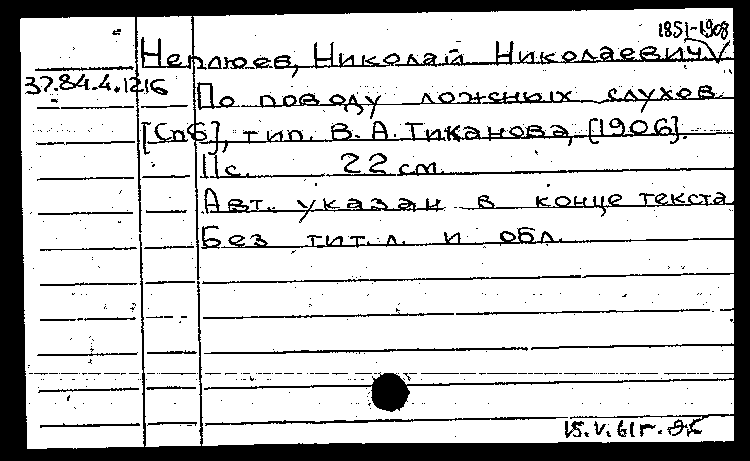 1851-1908
Неплюев, Николай Николаевич
37.84.4.1216
По поводу ложных слухов.
[Спб], тип. В. А. Тиханова, [1906].
11с. 22 см.
Авт. указан в конце текста
Без тит. л. и обл.
15.V.61г.